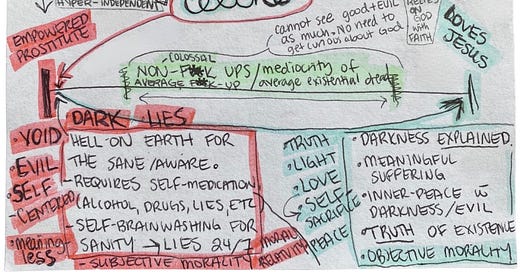 HYPER-INDEPENDENT
EMPOWERED
PROSTITUTE
cannot see good+EVIL
as much. NO need to
get curious about God.
RELIES
ON
GOD
with
FAITH
LOVES
JESUS
COLOSSAL
NON-F**K UPS/mediocrity of
AVERAGE F**K-UP/average existential dread
DARK LIES
• VOID
• EVIL
• SELF
CENTERED
• meaning-
less
HELL ON EARTH FOR
THE SANE/AWARE.
- REQUIRES SELF-MEDICATION
(ALCOHOL, DRUGS, LIES, ETC
- SELF-BRAINWASHING FOR
SANITY → LIES 24/7
- SUBJECTIVE MORALITY
MORAL
RELATIVITY
• TRUTH
• LIGHT
• LOVE
• SELF-
SACRIFICE
• PEACE
• DARKNESS EXPLAINED.
• MEANINGFUL
SUFFERING
• INNER-PEACE in
DARKNESS/EVIL
• TRUTH OF EXISTENCE
• OBJECTIVE MORALITY